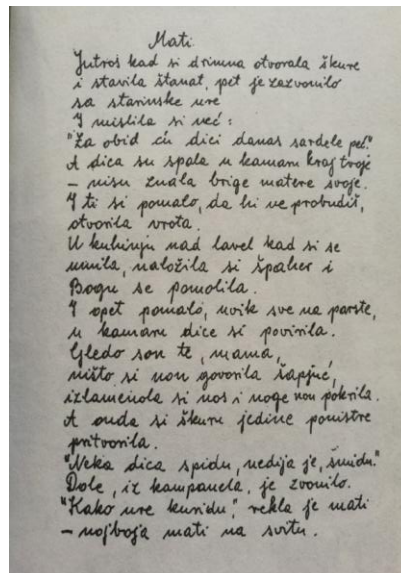 Mati
Jutros kad si drimna otvorala škure
i stavila štanat, pet je zazvonilo
sa starinske ure
I mislila si već:
"Za obid ću dici danas sardele peć."
A dica su spala u kamaru kraj tvoje
– nisu znala brige matere svoje.
I ti si pomalo, da hi ne probudiš,
otvorila vrota.
U kuhinju nad lavel kad si se
umila, naložila si špaher i
Bogu se pomolila.
I opet pomalo, uvik sve na parste,
u kamaru dice si povirila.
Gledo son te, mama,
ništo si non govorila šapjuć,
izlamenola si nos i noge non pokrila.
A onda si škuru jedine ponistre
pritvorila.
"Neka dica spidu, nedija je, šnidu."
Dole, iz kampanela, je zvonilo.
"Kako ure kuridu," rekla je mati
– nojboja mati na svitu.